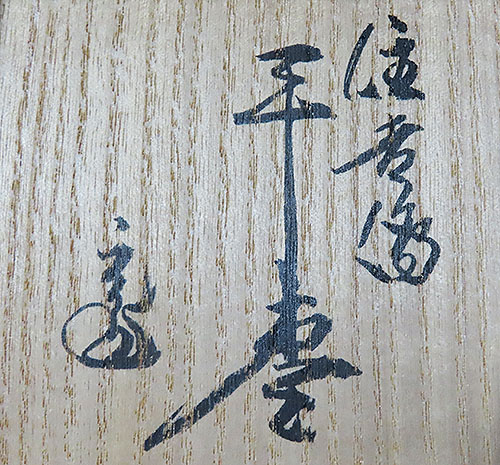 住吉橋
平棗